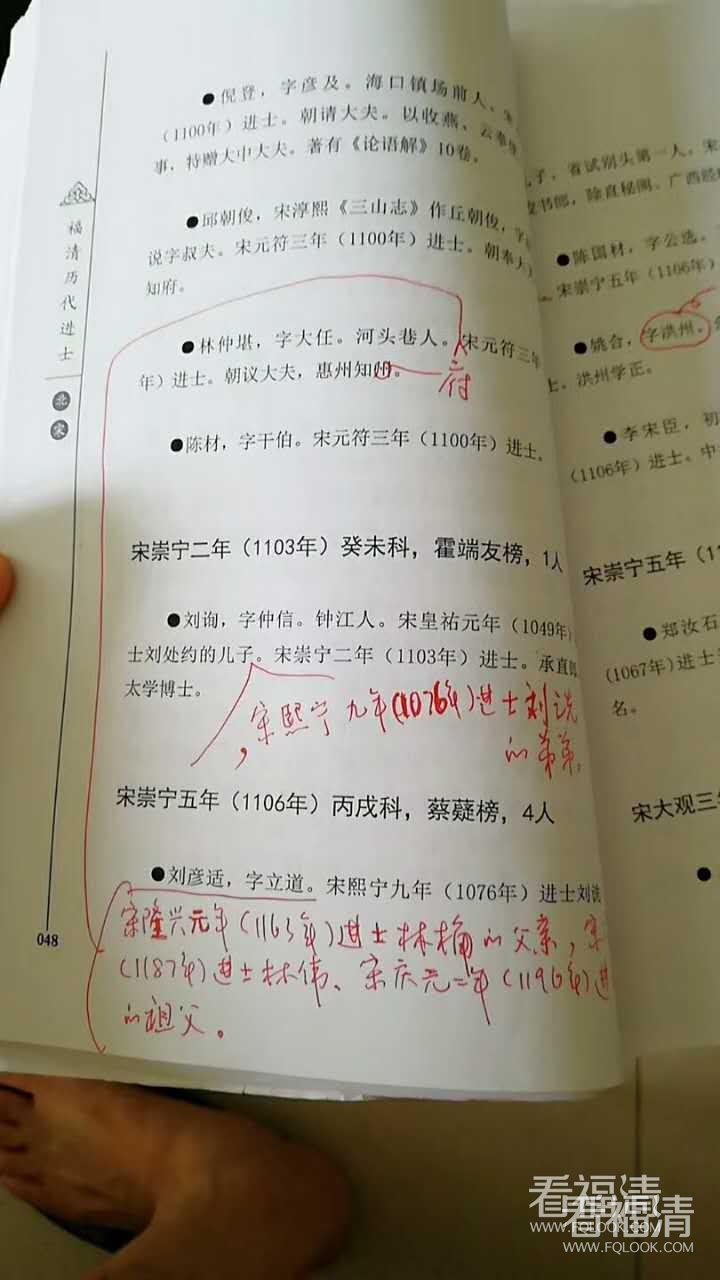 福清历代进士
北宋
●倪登，字彦及。海口镇场前人。宋
(1100年）进士。朝请大夫。以收燕、云
事，特赠大中大夫。著有《论语解》10卷。
●邱朝俊，宋淳熙《三山志》作丘朝俊，字
说字叔夫。宋元符三年（1100年）进士。朝奉大
知府。
●林仲堪，字大任。河头巷人。宋元符三年
年）进士。朝议大夫，惠州知州。
府
●陈材，字干伯。宋元符三年（1100年）进士。
宋崇宁二年（1103年）癸未科，霍端友榜，1人
●刘询，字仲信。钟江人。宋皇祐元年（1049年）
士刘处约的儿子。宋崇宁二年（1103年）进士。承直郎
太学博士。
，宋熙宁九年(1076年)进士刘
的弟弟
宋崇宁五年（1106年）丙戌科，蔡薿榜，4人
●刘彦适，字立道。宋熙宁九年（1076年）进士刘
宋隆兴元年(1163年)进士林桷的父亲，宋
(1187年)进士林伟、宋庆元二年(1196年)进
的祖父。
048
子，省试别头第一人。宋
书郎，除直秘阁、广西
●陈国材，字公选。
宋崇宁五年（1106年）
●姚合，字洪州。
士。洪州学正。
●李宋臣，初
（1106年）进士。中
宋崇宁五年（11
●郑汝石
(1067年)进士
名。
宋大观三年
●
看福清
WWW.FQLOOK.COM
看福清
WWW.FQLOOK.COM